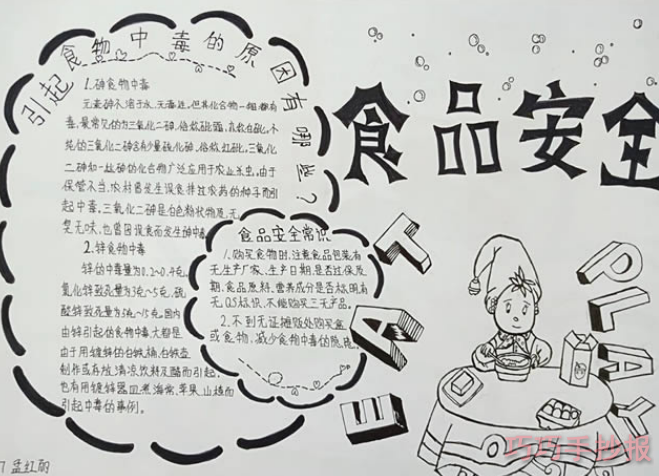 引起食物中毒的原因有哪些?
1.砷食物中毒
元素砷不溶于水,无毒性,但其化合物一般都有
毒,最常见的为三氧化二砷,俗称砒霜,
纯的三氧化二砷含有少量硫化砷,俗称红砒,三氧化
二砷和一些砷的化合物广泛应用于农业杀虫,由于
保管不当,农村曾发生误食拌过农药的种子而引
起中毒,三氧化二砷是白色粉状物质,无
臭无味,也曾因误食而发生砷中毒
2.锌食物中毒
锌的中毒量为0.2~0.4克,
氯化锌致死量为3克~5克,硫
酸锌致死量为5克~15克,国内
由锌引起的食物中毒,大都是
由于用镀锌的白铁桶,白铁壶
制作或存放,清凉饮料及醋而引起,
也有用镀锌器皿煮海棠、苹果、山楂而
引起中毒的事例。
食品安全常识
1.购买食物时,注意食品包装有
无生产厂家、生产日期,是否过保质
期,食品原料、营养成分是否标明,有
无QS标识,不能购买三无产品。
2.不到无证摊贩处购买盒饭
或食物,减少食物中毒的隐患。
食品安全
EAT
PLAY
孟红丽
巧巧手抄报